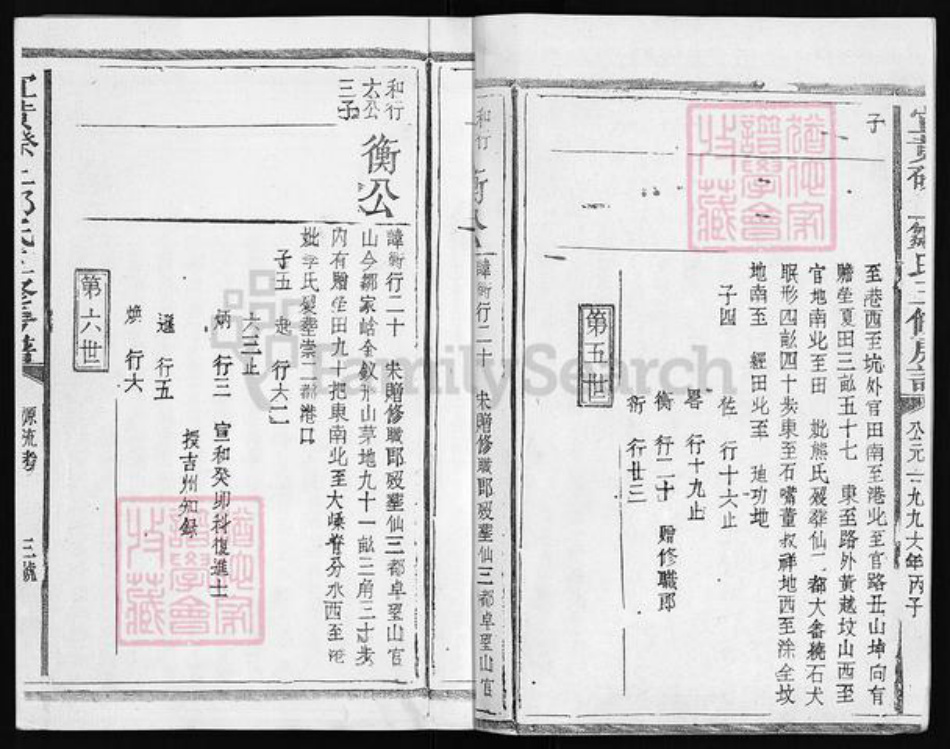 子
至港西至坑外官田南至港北至官路丑山坤向有
贍塋夏田三畝五十七 東至路外黃越坟山西至
官地南北至田 妣熊氏歿葬仙二都大畬繞石犬
眠形四畝四十步東至石嘴董叔祥地西至涂全坟
地南至 經田北至 廸功地
子四 佐 行十六止
晷 行十九止
衡 行二十 贈修職郎
衎 行廿三
第五世
公元一九九六年丙子
和行
諱衡行二十 宋贈修職郎歿塟仙三都卓望山官
和行
太公
三子
衡公
諱衡行二十 宋贈修職郎歿塟仙三都卓望山官
山今鄒家峆金釵形山茅地九十一畝三角三十步
内有贍塋田九十把東南北至大嵊脊分水西至港
妣李氏歿塟崇二都港口
子五 行大二
大三止
炳 行三 宣和癸卯科復進士
授吉州知錄
暹 行五
煥 行六
第六世
源流考
三號
FamilySearch